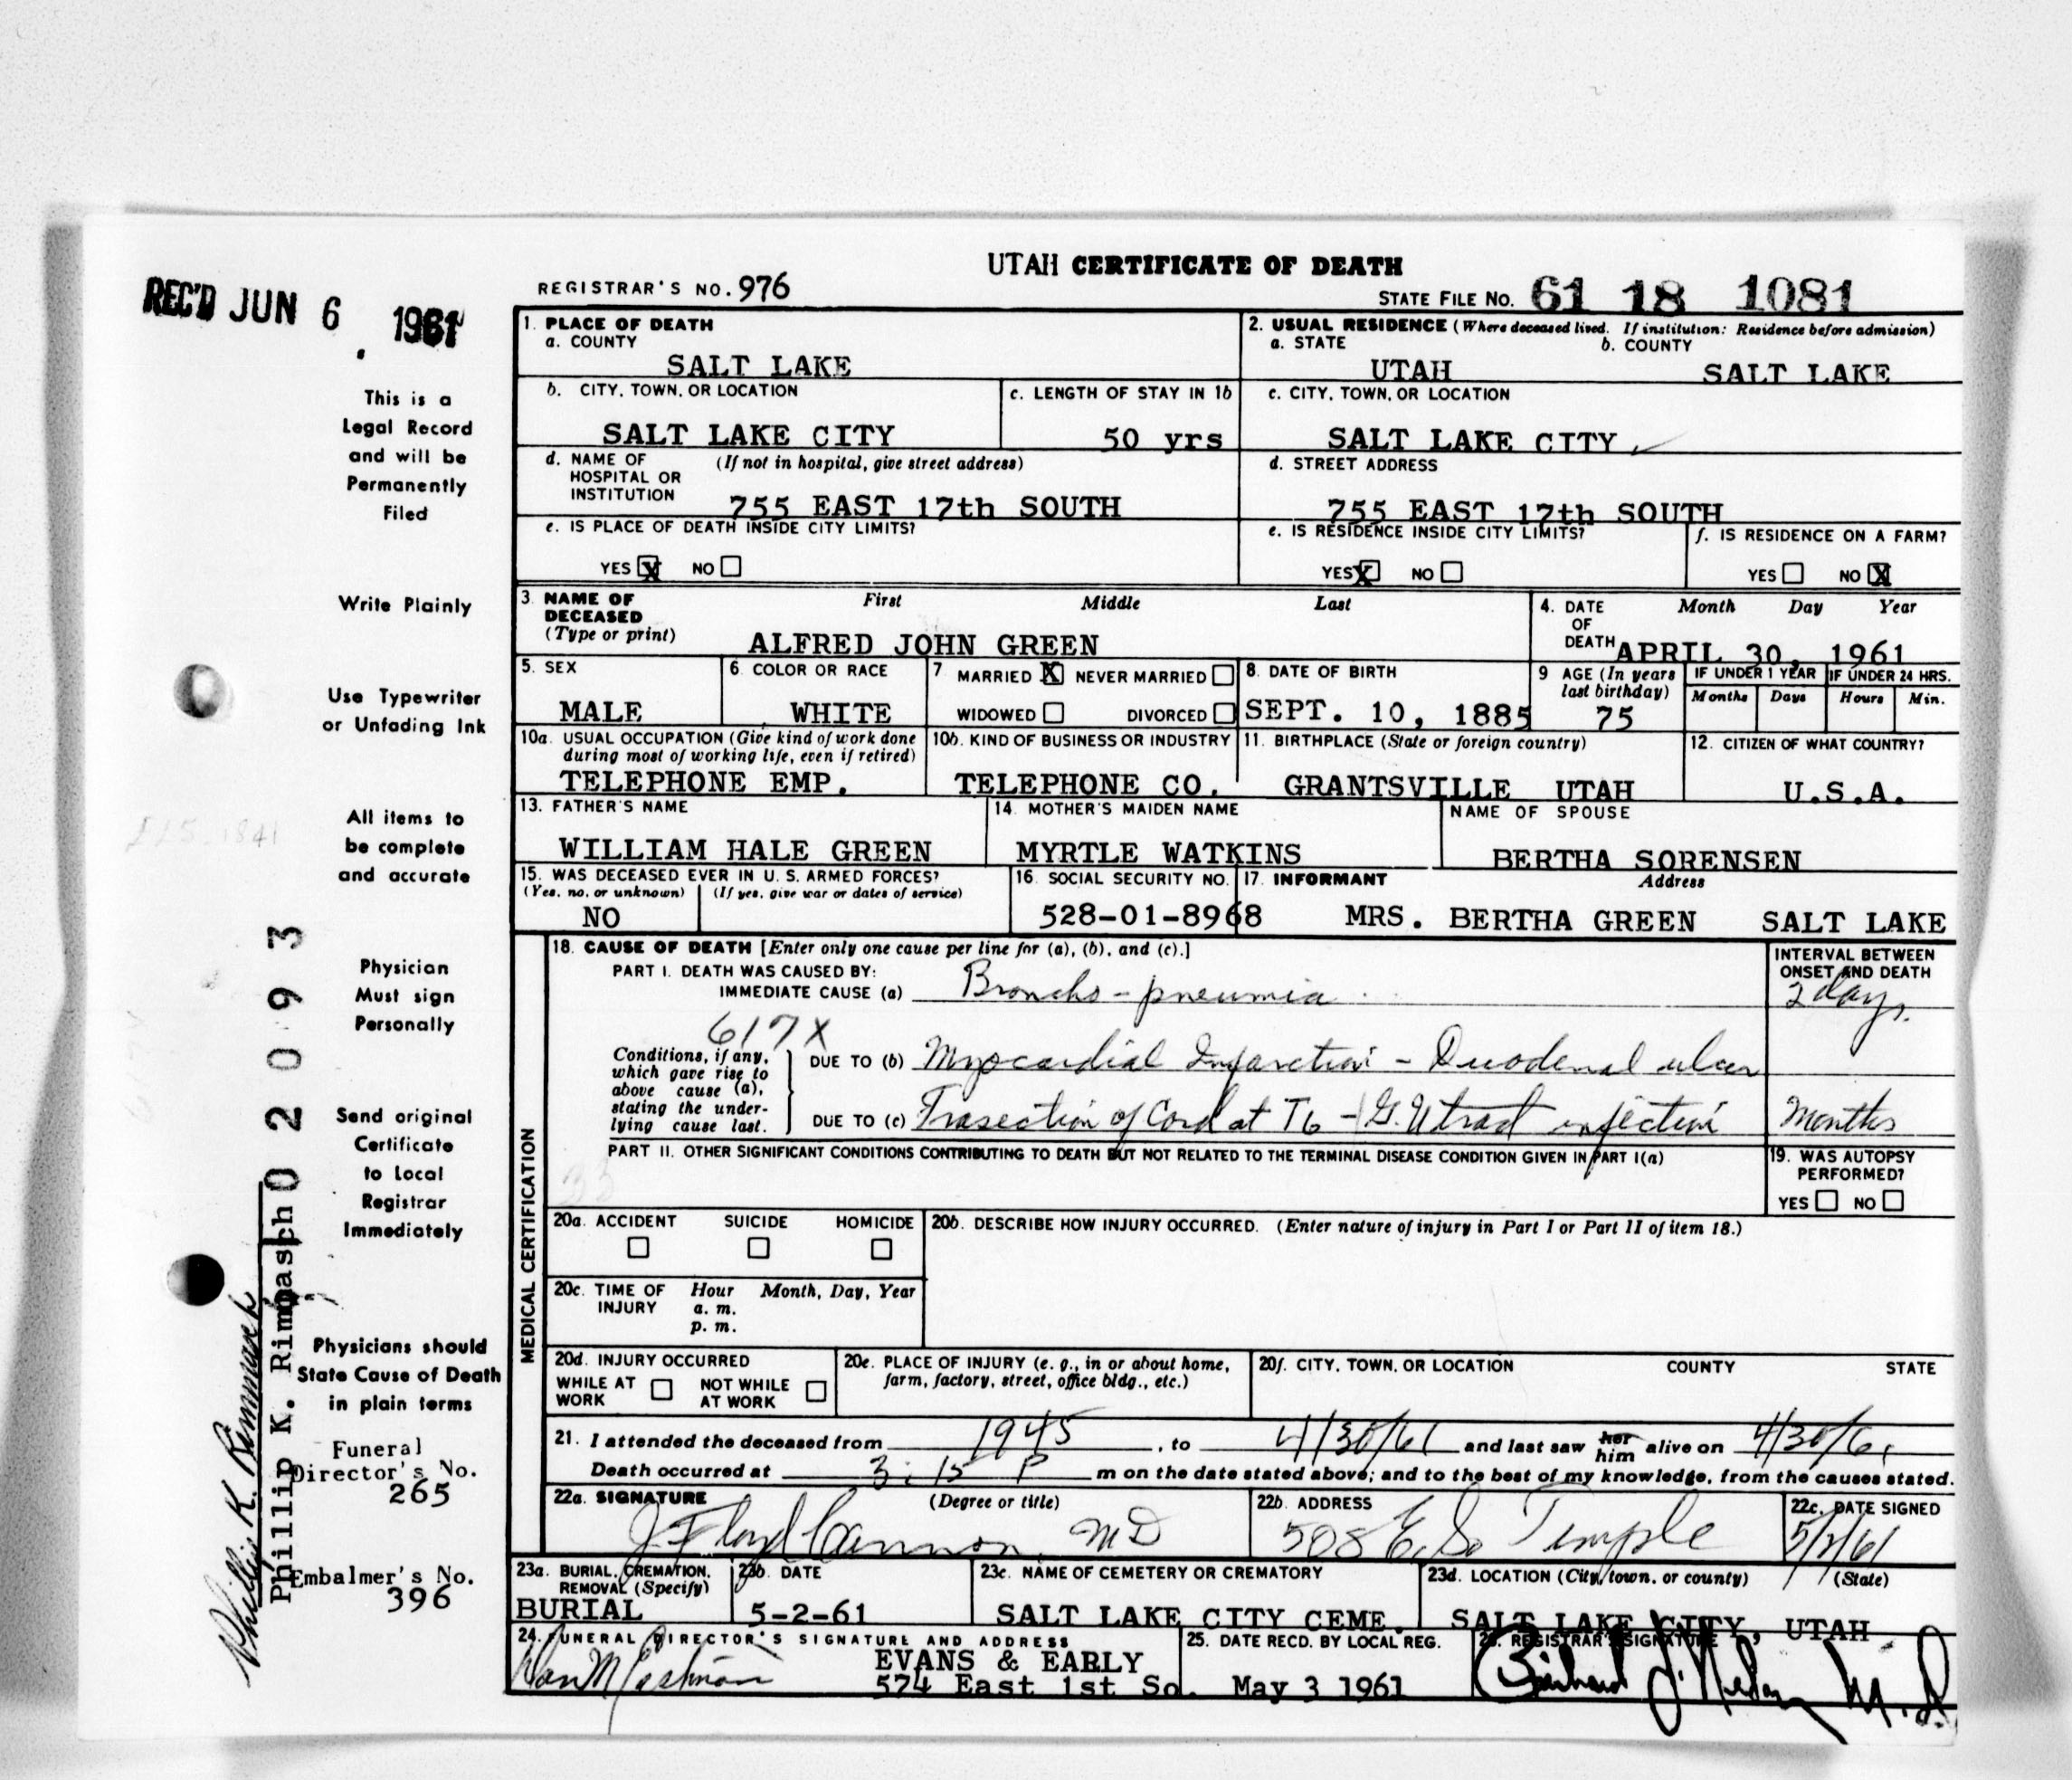 UTAH CERTIFICATE OF DEATH
REC'D JUN 6 1961
REGISTRAR'S NO. 976
STATE FILE NO. 61 18 1081
This is a
Legal Record
and will be
Permanently
Filed
Write Plainly
Use Typewriter
or Unfading Ink
All items to
be complete
and accurate
Physician
Must sign
Personally
Send original
Certificate
to Local
Registrar
Immediately
Physicians should
State Cause of Death
in plain terms
Funeral
Director's No.
265
Embalmer's No.
396
Phillip K. Rimmasch
Phillip K. Rimmasch
02093
1. PLACE OF DEATH
a. COUNTY
SALT LAKE
b. CITY, TOWN, OR LOCATION
SALT LAKE CITY
c. LENGTH OF STAY IN 1b
50 yrs
d. NAME OF HOSPITAL OR INSTITUTION (If not in hospital, give street address)
755 EAST 17th SOUTH
e. IS PLACE OF DEATH INSIDE CITY LIMITS?
YES X NO
2. USUAL RESIDENCE (Where deceased lived. If institution: Residence before admission)
a. STATE
UTAH
b. COUNTY
SALT LAKE
c. CITY, TOWN, OR LOCATION
SALT LAKE CITY
d. STREET ADDRESS
755 EAST 17th SOUTH
e. IS RESIDENCE INSIDE CITY LIMITS?
YES X NO
f. IS RESIDENCE ON A FARM?
YES NO X
3. NAME OF DECEASED (Type or print) First Middle Last
ALFRED JOHN GREEN
4. DATE OF DEATH Month Day Year
APRIL 30, 1961
5. SEX
MALE
6. COLOR OR RACE
WHITE
7 MARRIED X NEVER MARRIED
WIDOWED DIVORCED
8. DATE OF BIRTH
SEPT. 10, 1885
9 AGE (In years last birthday)
75
IF UNDER 1 YEAR
Months Days
IF UNDER 24 HRS.
Hours Min.
10a. USUAL OCCUPATION (Give kind of work done during most of working life, even if retired)
TELEPHONE EMP.
10b. KIND OF BUSINESS OR INDUSTRY
TELEPHONE CO.
11. BIRTHPLACE (State or foreign country)
GRANTSVILLE UTAH
12. CITIZEN OF WHAT COUNTRY?
U.S.A.
13. FATHER'S NAME
WILLIAM HALE GREEN
14. MOTHER'S MAIDEN NAME
MYRTLE WATKINS
NAME OF SPOUSE
BERTHA SORENSEN
15. WAS DECEASED EVER IN U. S. ARMED FORCES?
(Yes, no, or unknown) (If yes, give war or dates of service)
NO
16. SOCIAL SECURITY NO.
528-01-8968
17. INFORMANT Address
MRS. BERTHA GREEN SALT LAKE
MEDICAL CERTIFICATION
18. CAUSE OF DEATH [Enter only one cause per line for (a), (b), and (c).]
INTERVAL BETWEEN ONSET AND DEATH
PART I. DEATH WAS CAUSED BY:
IMMEDIATE CAUSE (a) Broncho-pneumia
2 days.
617X
Conditions, if any, which gave rise to above cause (a), stating the underlying cause last.
DUE TO (b) Myocardial Infarction - Duodenal ulcer
DUE TO (c) Trasection of Cord at T6 - G.U tract infection
Months
PART II. OTHER SIGNIFICANT CONDITIONS CONTRIBUTING TO DEATH BUT NOT RELATED TO THE TERMINAL DISEASE CONDITION GIVEN IN PART I(a)
19. WAS AUTOPSY PERFORMED?
YES NO
20a. ACCIDENT SUICIDE HOMICIDE
20b. DESCRIBE HOW INJURY OCCURRED. (Enter nature of injury in Part I or Part II of item 18.)
20c. TIME OF INJURY Hour Month, Day, Year
a. m.
p. m.
20d. INJURY OCCURRED
WHILE AT WORK NOT WHILE AT WORK
20e. PLACE OF INJURY (e. g., in or about home, farm, factory, street, office bldg., etc.)
20f. CITY, TOWN, OR LOCATION COUNTY STATE
21. I attended the deceased from 1945, to 4/30/61 and last saw her him alive on 4/30/61
Death occurred at 3:15 P m on the date stated above; and to the best of my knowledge, from the causes stated.
22a. SIGNATURE (Degree or title)
J. Floyd Cannon MD
22b. ADDRESS
508 E. So Temple
22c. DATE SIGNED
5/2/61
23a. BURIAL, CREMATION, REMOVAL (Specify)
BURIAL
23b. DATE
5-2-61
23c. NAME OF CEMETERY OR CREMATORY
SALT LAKE CITY CEME.
23d. LOCATION (City, town, or county) (State)
SALT LAKE CITY, UTAH
24. FUNERAL DIRECTOR'S SIGNATURE AND ADDRESS
Dan M Eastman
EVANS & EARLY
574 East 1st So.
25. DATE RECD. BY LOCAL REG.
May 3 1961
26. REGISTRAR'S SIGNATURE
M.D.